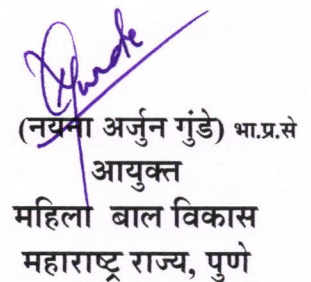 (नयना अर्जुन गुंडे) भा.प्र.से
आयुक्त
महिला बाल विकास
महाराष्ट्र राज्य, पुणे